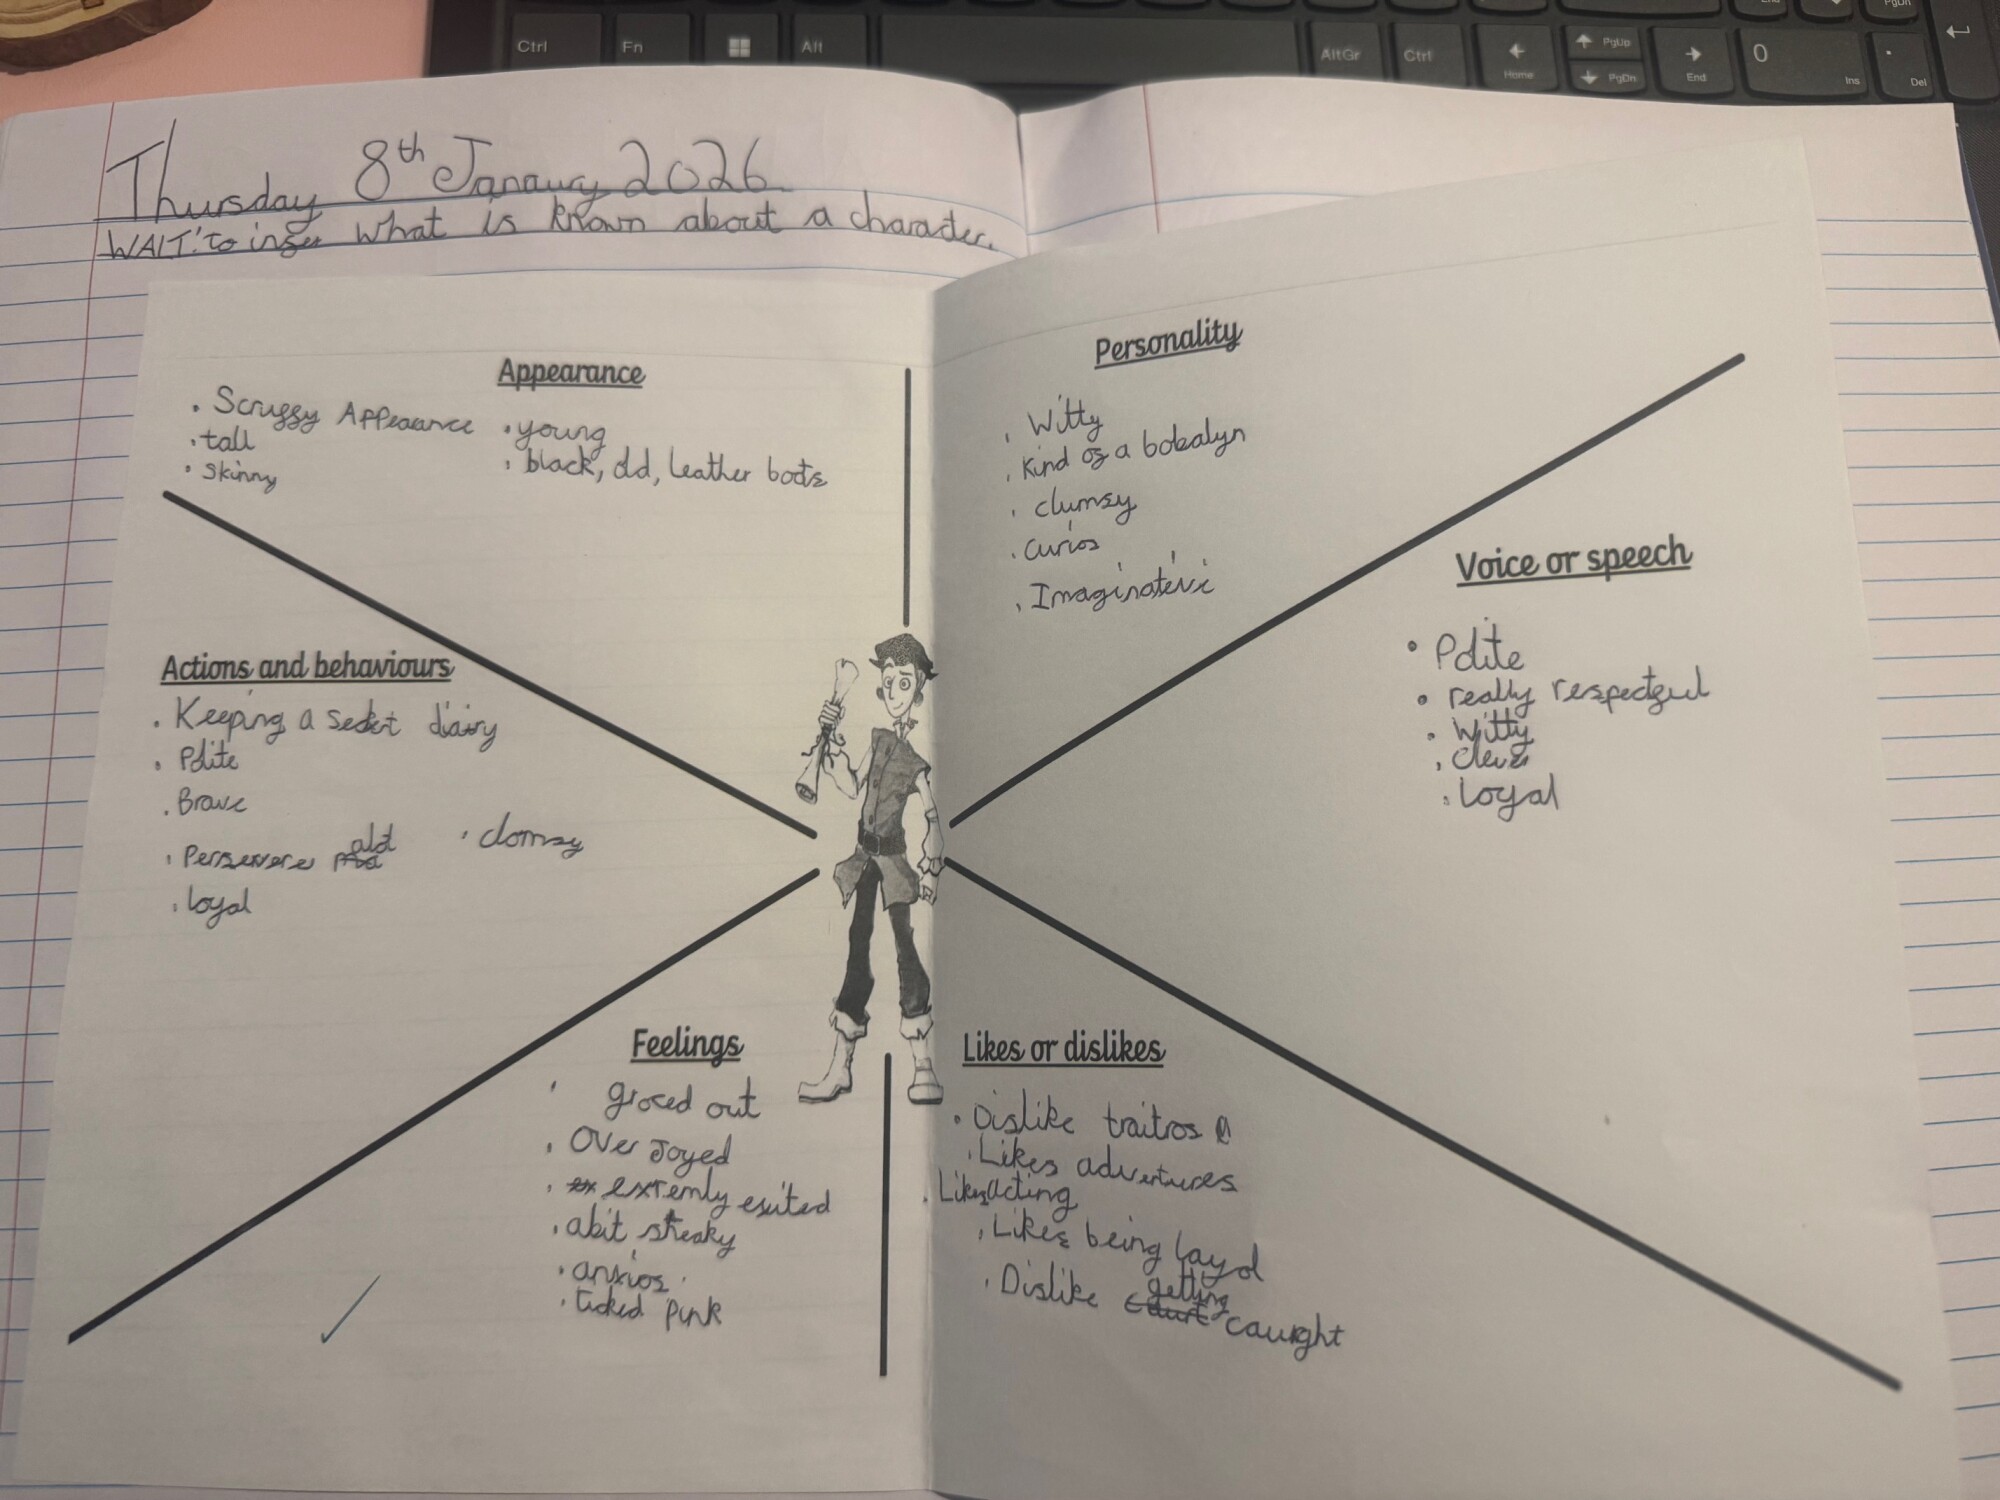 Ctrl Fn Alt AltGr Ctrl Home PgUp PgDn End 0 Ins . Del
Thursday 8th Janaury 2026
WALT: To infer what is known about a character.
Appearance
. Scruffy Appearance
. tall
. skinny
. young
. black, old, leather boots
Personality
. Witty
. Kind of a bobalyn
. clumsy
. curios
. Imaginative
Voice or speech
. Polite
. really respectful
. Witty
. clever
. Loyal
Actions and behaviours
. Keeping a secket diairy
. Polite
. Brave
. Persevere alot
. loyal
. clomsy
Feelings
. groced out
. Over Joyed
. extremly exited
. abit sneaky
. anxios
. ticked pink
Likes or dislikes
. Dislike traitros
. Likes adventures
. Likes acting
. Likes being layol
. Dislike getting caurght